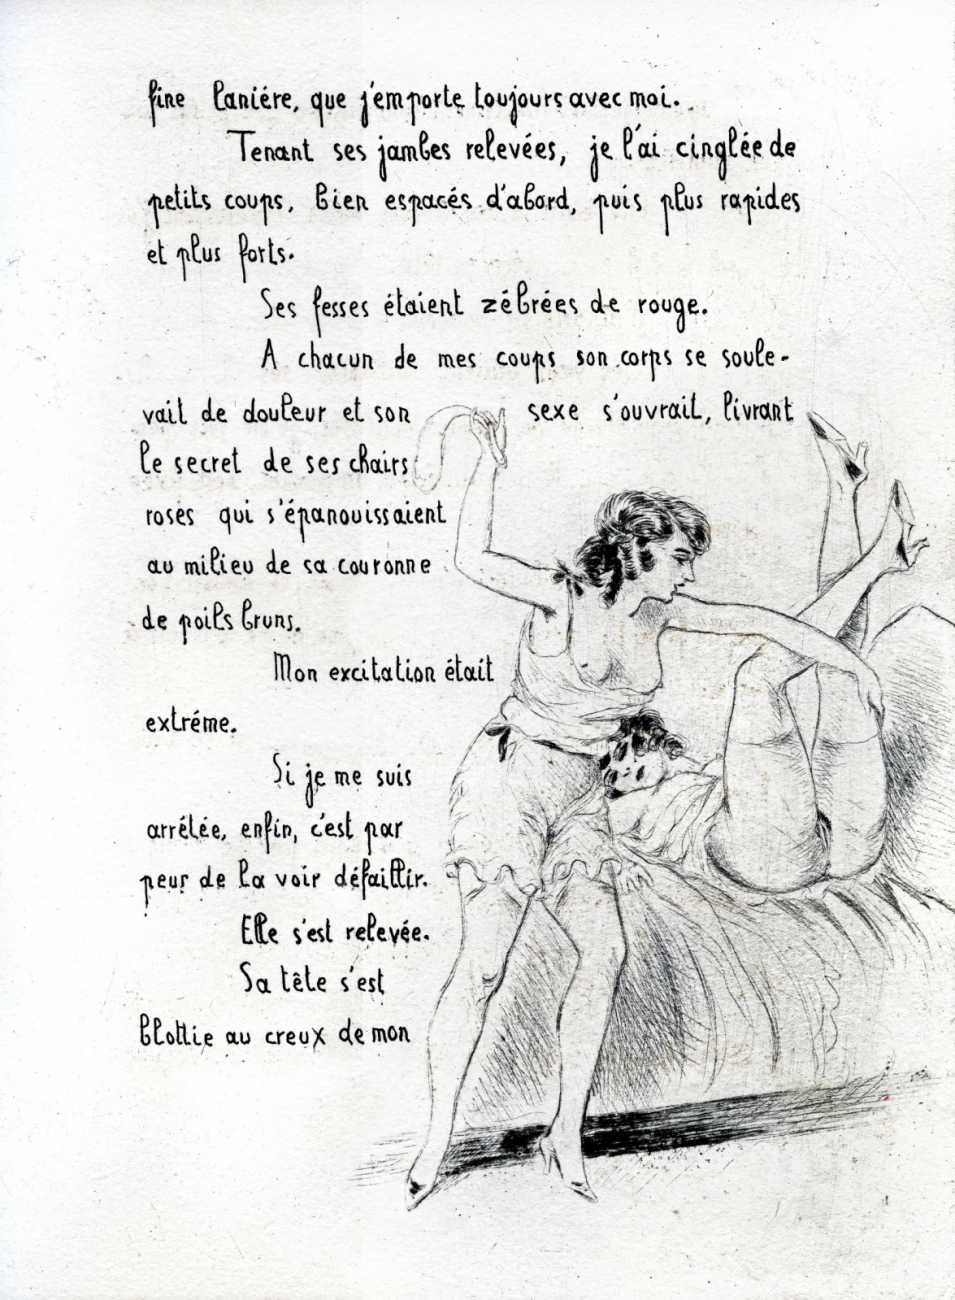 fine laniére, que j'emporte toujours avec moi.
Tenant ses jambes relevées, je l'ai cinglée de
petits coups, bien espacés d'abord, puis plus rapides
et plus forts.
Ses fesses étaient zébrées de rouge.
A chacun de mes coups son corps se soule-
vait de douleur et son sexe s'ouvrait, livrant
le secret de ses chairs
roses qui s'épanouissaient
au milieu de sa couronne
de poils bruns.
Mon excitation était
extréme.
Si je me suis
arrêtée, enfin, c'est par
peur de la voir défaillir.
Elle s'est relevée.
Sa tête s'est
blottie au creux de mon